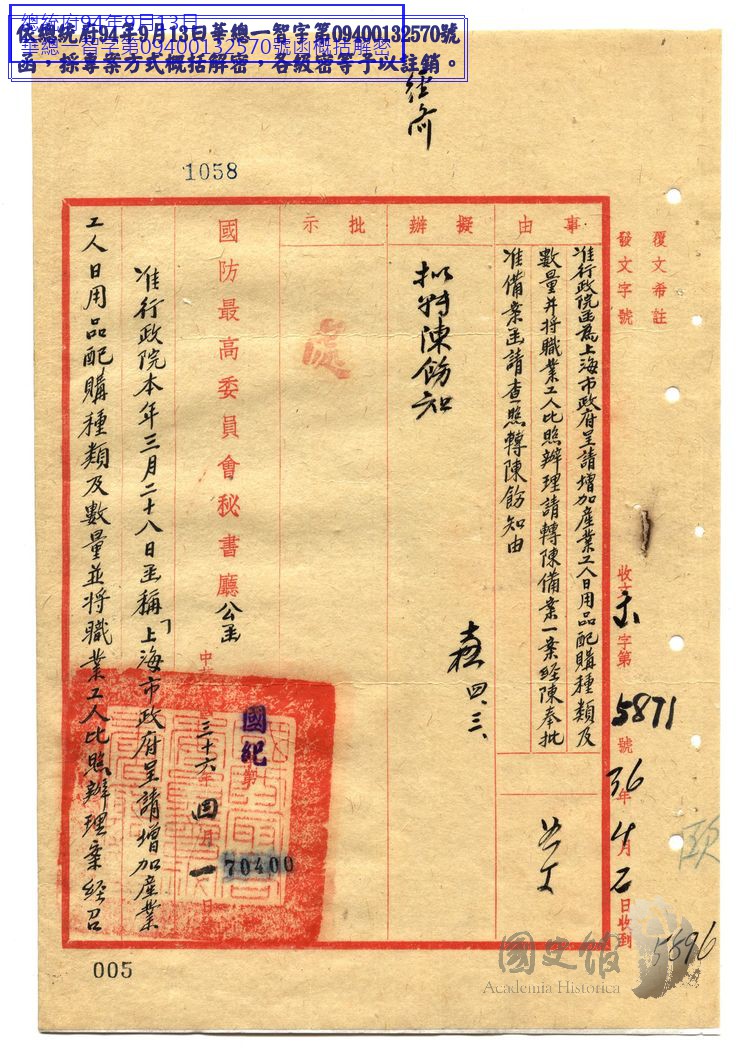 總統府94年9月13日
華總一智字第09400132570號函概括解密
依總統府94年9月13日華總一智字第09400132570號
函，採專案方式概括解密，各級密等予以註銷。
經濟
1058
覆文希註
發文字號
收文字第5871號
36年4月2日收到
5896
事由
准行政院函為上海市政府呈請增加產業工人日用品配購種類及
數量并將職業工人比照辦理請轉陳備案一案經陳奉批
准備案函請查照轉陳飭知由
擬辦
擬轉陳飭知
四、三、
批示
國防最高委員會秘書廳公函
中華
三十六年四月一日
國紀
第
70400
准行政院本年三月二十八日函稱「上海市政府呈請增加產業
工人日用品配購種類及數量並將職業工人比照辦理案經召
005
國史館
Academia Historica